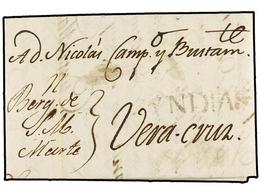 A d. Nicolás Camp.º y Bustam.te
n
Berg. de
S. M.
Marte
Vera-cruz.
YNDIAS